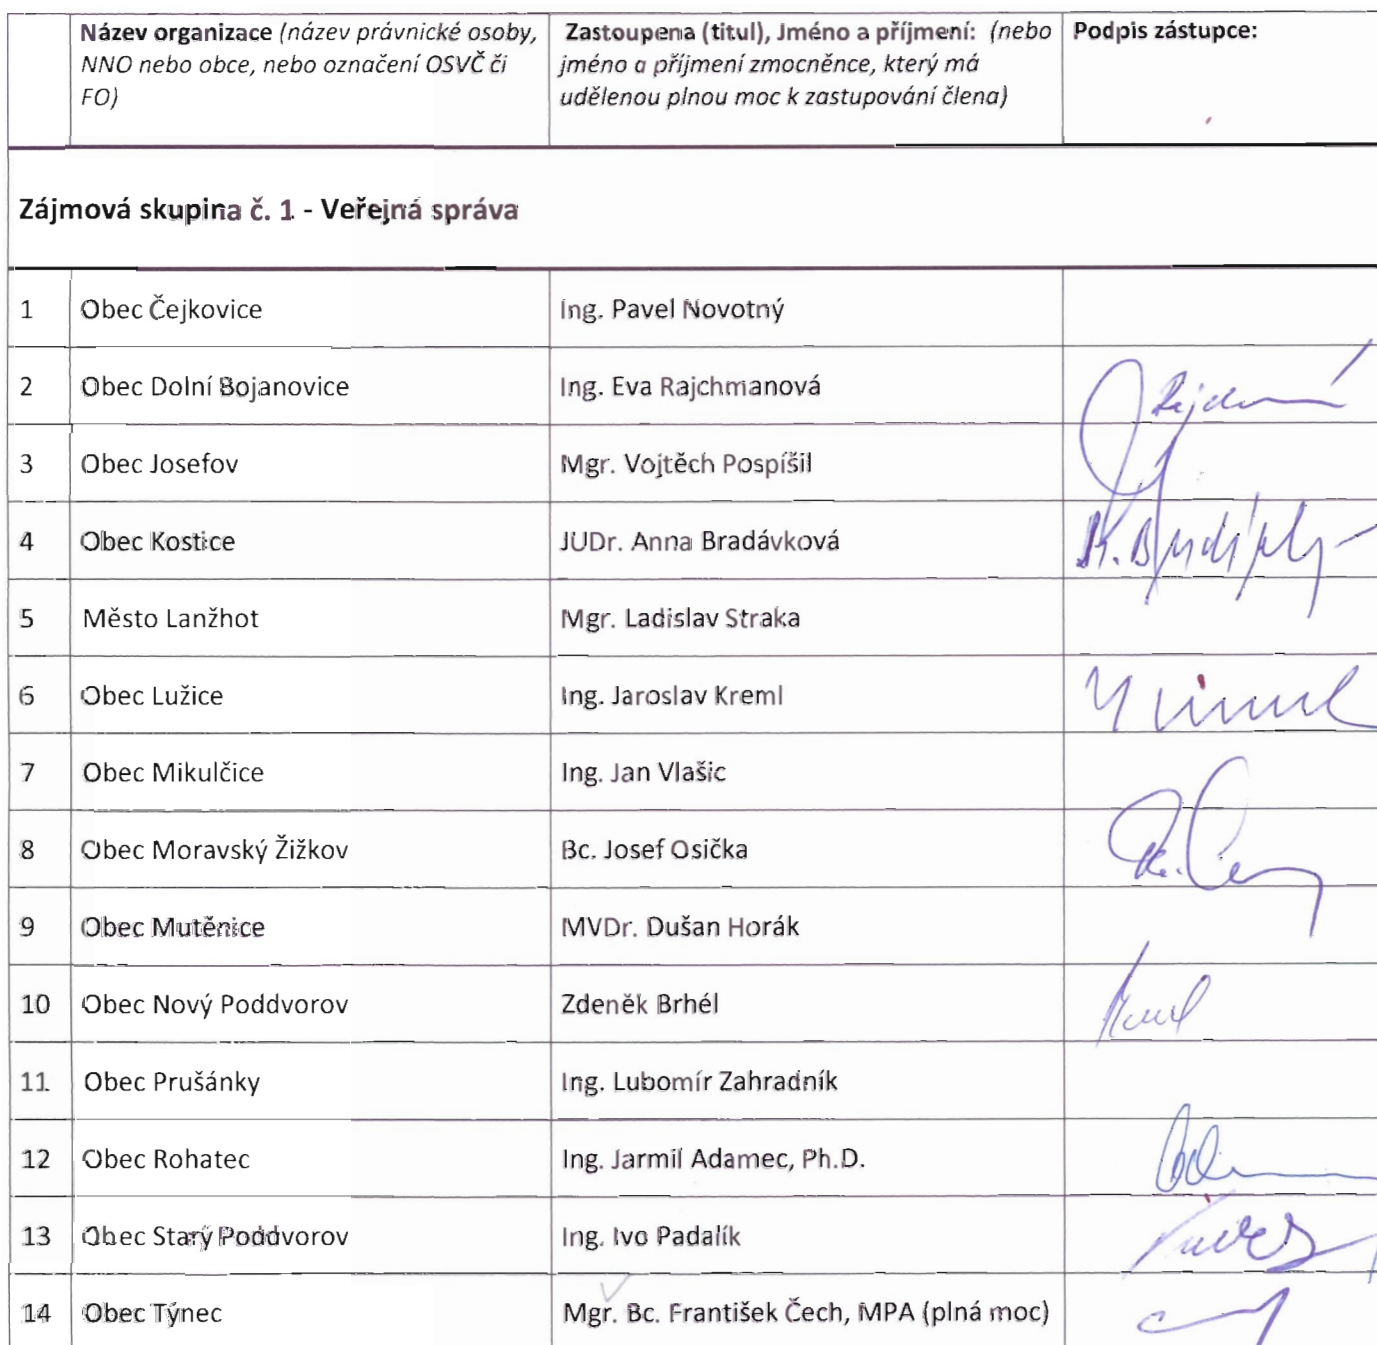 Název organizace (název právnické osoby,
NNO nebo obce, nebo označení OSVČ či
FO)
Zastoupena (titul), Jméno a příjmení: (nebo
jméno a příjmení zmocněnce, který má
udělenou plnou moc k zastupování člena)
Podpis zástupce:
Zájmová skupina č. 1 - Veřejná správa
1 Obec Čejkovice Ing. Pavel Novotný
2 Obec Dolní Bojanovice Ing. Eva Rajchmanová
3 Obec Josefov Mgr. Vojtěch Pospíšil
4 Obec Kostice JUDr. Anna Bradávková
5 Město Lanžhot Mgr. Ladislav Straka
6 Obec Lužice Ing. Jaroslav Kreml
7 Obec Mikulčice Ing. Jan Vlašic
8 Obec Moravský Žižkov Bc. Josef Osička
9 Obec Mutěnice MVDr. Dušan Horák
10 Obec Nový Poddvorov Zdeněk Brhél
11 Obec Prušánky Ing. Lubomír Zahradník
12 Obec Rohatec Ing. Jarmil Adamec, Ph.D.
13 Obec Starý Poddvorov Ing. Ivo Padalík
14 Obec Týnec Mgr. Bc. František Čech, MPA (plná moc)